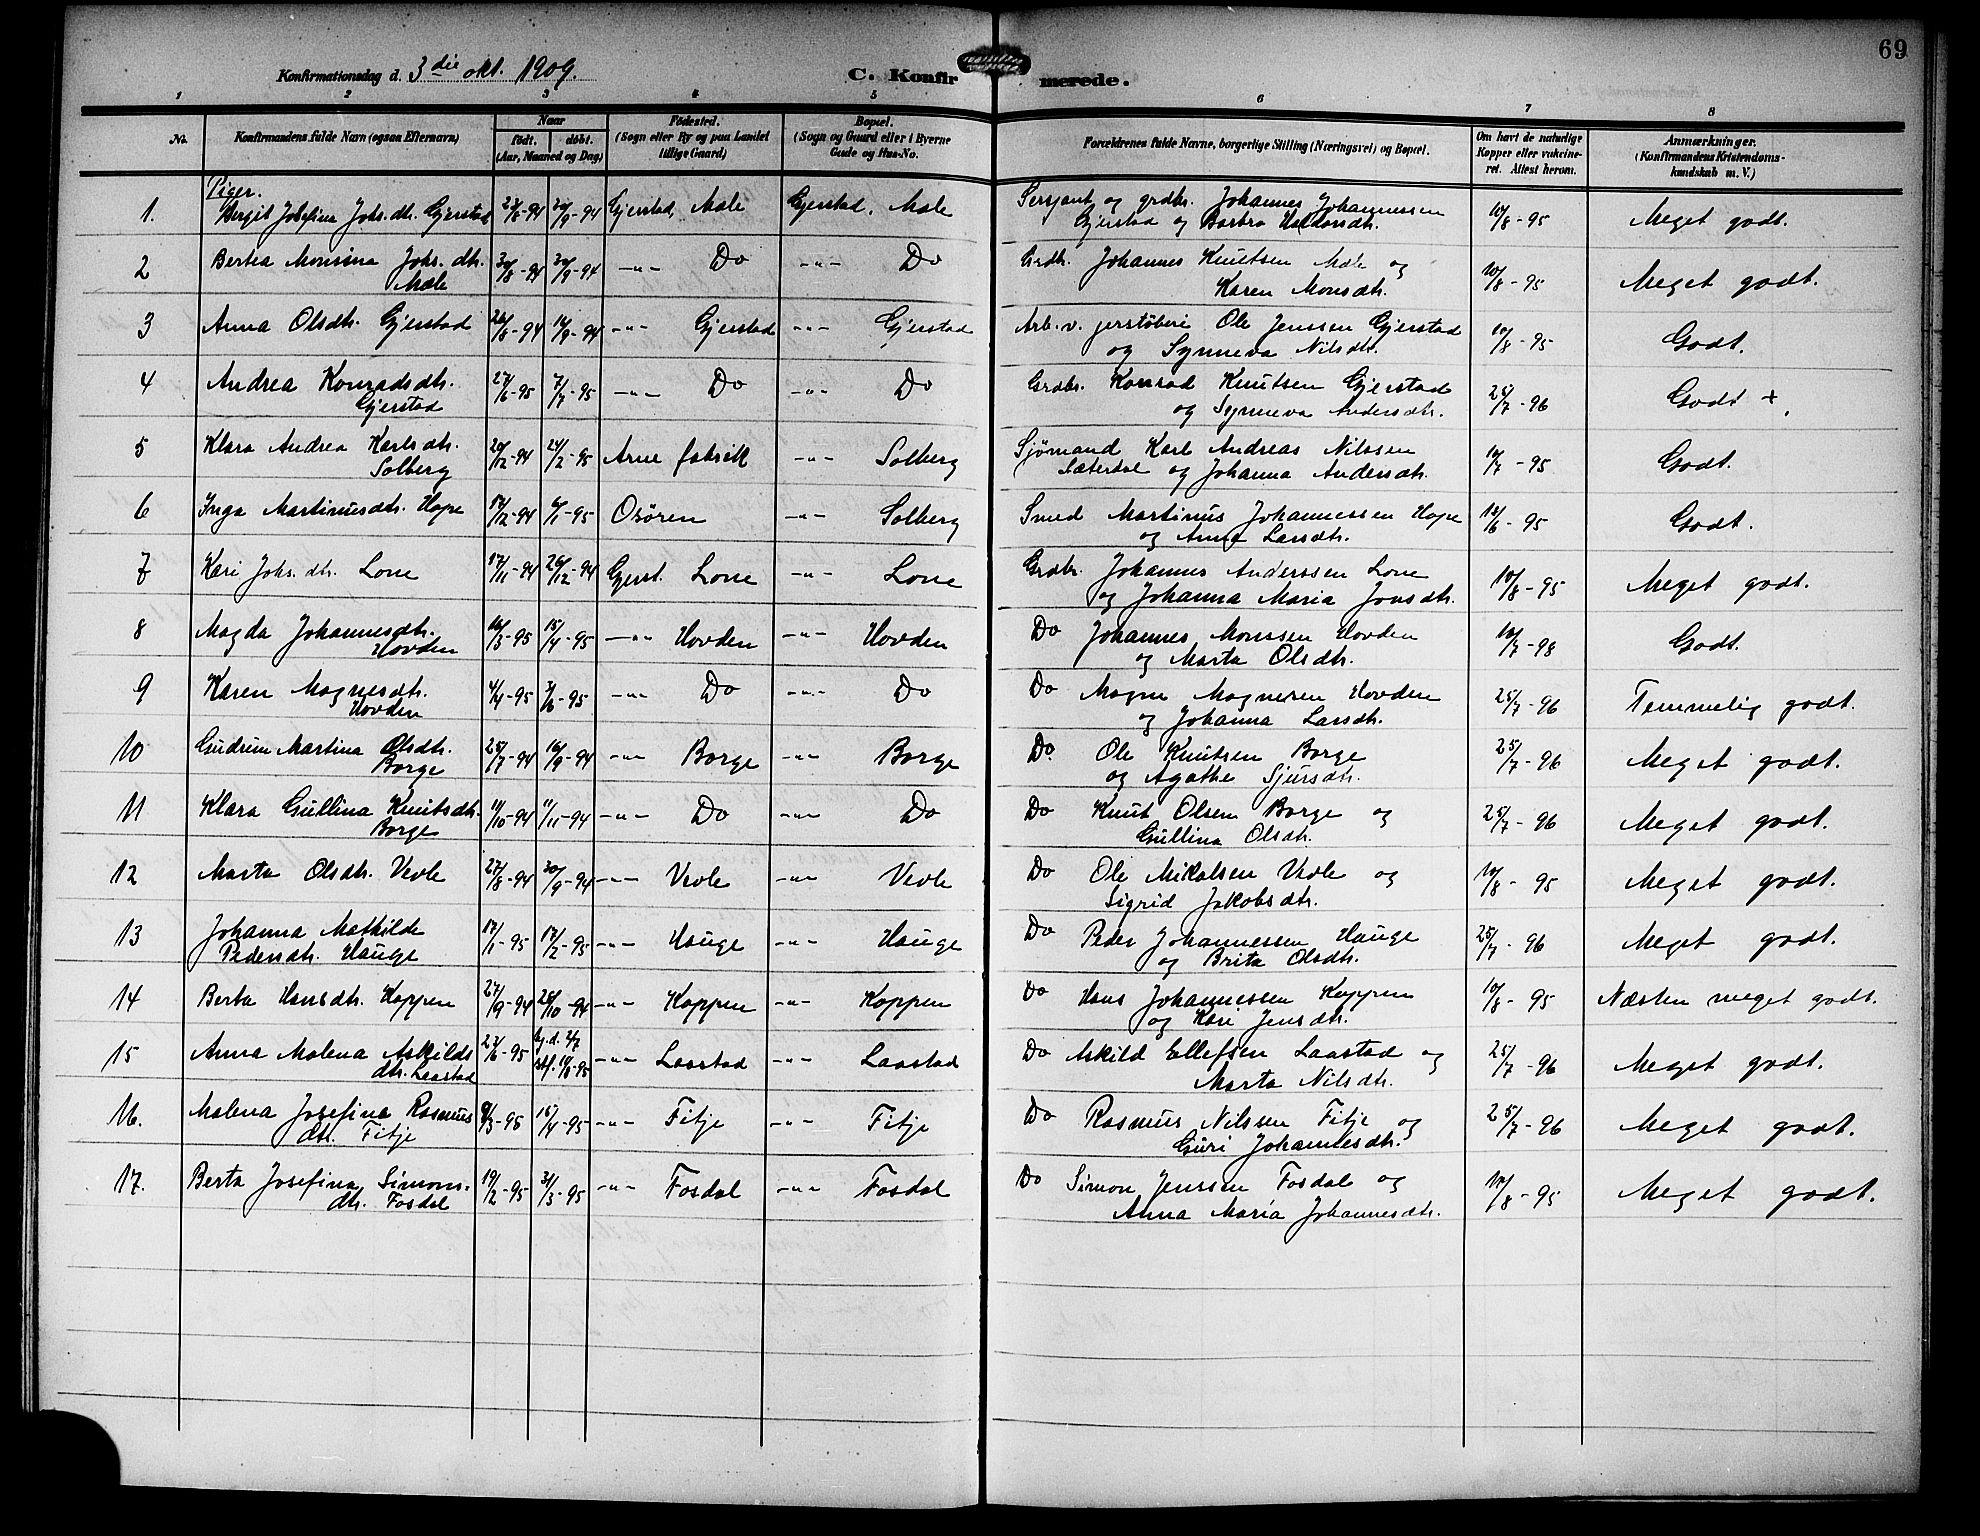 69
Konfirmationsdag d. 3die okt. 1909.
C. Konfirmerede.
1 2 3 4 5 6 7 8
No. Konfirmandens fulde Navn (ogsaa Efternavn) Naar født. døbt. (Aar, Maaned og Dag) Fødested. (Sogn eller By og paa Landet tillige Gaard) Bopæl. (Sogn og Gaard eller i Byerne Gade og Hus-No. Forældrenes fulde Navne, borgerlige Stilling (Næringsvei) og Bopæl. Om havt de naturlige Kopper eller vakcineret. Attest herom. Anmærkninger. (Konfirmandens Kristendomskundskab m. V.)
Piger.
1. Bergit Josefina Johs. dtr. Gjerstad 30/9-94 Gjerstad, Mæle Gjerstad, Mæle Sersjant og grdbr. Johannes Johannessen 10/8-95 Meget godt.
Gjerstad og Barbra Haldorsdtr.
2 Berta Monsina Johs. dtr. 30/8-94 30/9-94 -"- Do -"- Do Grdb. Johannes Knutsen Mæle og 10/8-95 Meget godt.
Mæle Karen Monsdtr.
3 Anna Olsdtr. Gjerstad 26/8-94 16/9-94 -"- Gjerstad -"- Gjerstad Arb. v. jerstøberi Ole Jenssen Gjerstad 10/8-95 Godt.
og Synneva Nilsdtr.
4 Andrea Konradsdtr. 27/6-95 7/7-95 -"- Do -"- Do Grdbr. Konrad Knutsen Gjerstad 25/7-96 Godt +
Gjerstad og Synneva Andersdtr.
5 Klara Andrea Karlsdtr. 20/12-94 24/2-95 Arne fabrik -"- Solberg Sjømand Karl Andreas Nilssen 10/7-95 Godt.
Solberg Sæterdal og Johanna Andersdtr.
6 Inga Martinusdtr. Hope 17/12-94 6/1-95 Osøren -"- Solberg Smed Martinus Johannessen Hope 12/6-95 Godt.
og Anna Larsdtr.
7 Kari Johs. dtr. Lone 17/11-94 26/12-94 Gjerst. Lone -"- Lone Grdbr. Johannes Anderssen Lone 10/8-95 Meget godt.
og Johanna Maria Jonsdtr.
8 Magda Johannesdtr. 16/3-95 15/4-95 -"- Hovden -"- Hovden Do Johannes Monssen Hovden 10/7-98 Godt.
Hovden og Marta Olsdtr.
9 Karen Magnesdtr. 4/4-95 3/6-95 -"- Do -"- Do Do Magne Magnesen Hovden 25/7-96 Temmelig godt.
Hovden og Johanna Larsdtr.
10 Gudrun Martina Olsdtr. 25/7-94 16/9-94 -"- Borge -"- Borge Do Ole Knutsen Borge 25/7-96 Meget godt.
Borge og Agathe Sjursdtr.
11 Klara Gullina Knutsdtr. 11/10-94 11/11-94 -"- Do -"- Do Do Knut Olsen Borge og 25/7-96 Meget godt.
Borge Gullina Olsdtr.
12 Marta Olsdtr. Vevle 27/8-94 30/9-94 -"- Vevle -"- Vevle Do Ole Mikalsen Vevle og 10/8-95 Meget godt.
Sigrid Jakobsdtr.
13 Johanna Mathilde 17/1-95 17/2-95 -"- Hauge -"- Hauge Do Peder Johannessen Hauge 25/7-96 Meget godt.
Pedersdtr. Hauge og Brita Olsdtr.
14 Berta Hansdtr. Koppen 27/9-94 28/10-94 -"- Koppen -"- Koppen Do Hans Johannessen Koppen 10/8-95 Næsten meget godt.
og Kari Jensdtr.
15 Anna Malena Askilds 23/6-95 hj.d. 2/7 -"- Laastad -"- Laastad Do Askild Ellefsen Laastad og 25/7-96 Meget godt.
dtr. Laastad Marta Nilsdtr.
16. Malena Josefina Rasmus 9/3-95 15/4-95 -"- Fitje -"- Fitje Do Rasmus Nilssen Fitje og 25/7-96 Meget godt.
dtr. Fitje Guri Johannesdtr.
17. Berta Josefina Simons- 19/2-95 31/3-95 -"- Fosdal -"- Fosdal Do Simon Jenssen Fosdal og 10/8-95 Meget godt.
dtr. Fosdal Anna Maria Johannesdtr.